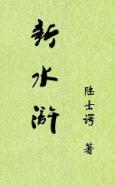 新水浒
陆士谔 著